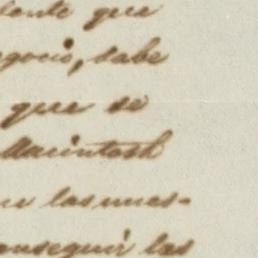 que
egocio, sabe
que se
Macintosh
las mues-
onseguir las